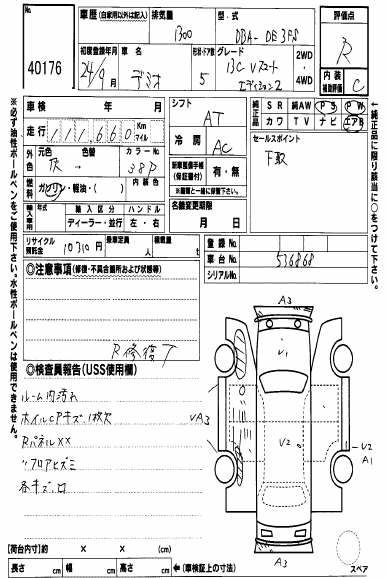 No.
40176
車歴 (自家用以外は記入)
排気量
1300
型・式
DBA-DE3FS
評価点
R
初度登録年月
24/9月
車名
デミオ
形状・ドア数
5
グレード
13C Vスマート
エディション2
2WD
・
4WD
内装
補助評価
C
車検 年 月
走行 111660 Km マイル
シフト
AT
冷房
AC
純正品
SR 純AW PS PW
カワ TV ナビ エアB
外色
元色
色替
カラーNo.
38P
内装色
燃料
ガソリン・軽油・( )
新車整備手帳
(保証書付)
有・無
※車両と一緒に保管下さい。
セールスポイント
下取
輸入車用
年式
輸入区分
ディーラー・並行
ハンドル
左・右
名義変更期限
月 日
リサイクル預託金
10310円
乗車定員
人
積載量
t
登録No.
車台No.
536868
シリアルNo.
◎注意事項 (修復・不具合箇所および状態等)
R修復T
◎検査員報告(USS使用欄)
ルーム内汚れ
ホイルCPキズ1枚欠
Rパネル××
〃フロアヒズミ
各キズ・凹
A3
V1
VA3
V2
V2
A1
A3
スペア
【荷台内寸】約 × × (cm)
長さ cm 幅 cm 高さ cm ←(車検証上の寸法)
※必ず油性ボールペンをご使用下さい。水性ボールペンは使用できません。
←純正品に限り該当に○をつけて下さい。